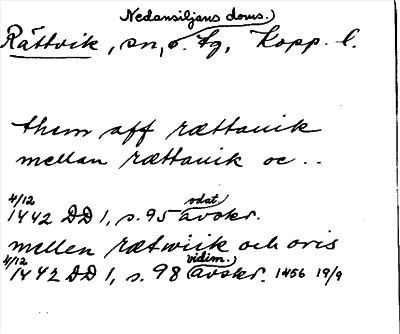 Nedansiljans doms.)
Rättvik, sn, o. tg, Kopp. l.
them aff rættauik
mellan rættauik oc ..
4/12 odat.
1442 DD 1, s. 95 avskr.
mellen rætwiik och oris
4/12 vidim.)
1442 DD 1, s. 98 (avskr. 1456 19/9